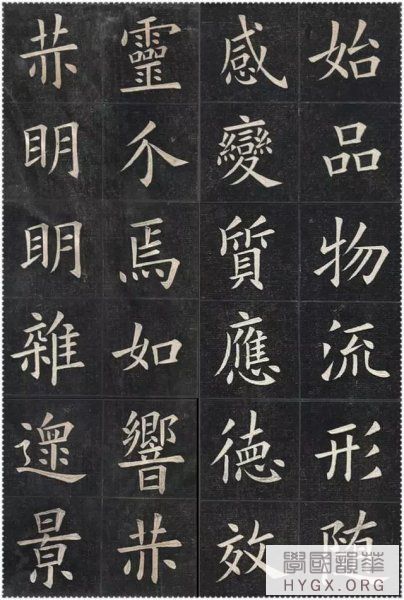 始品物流形随
感變質應徳效
靈介焉如響赫
赫明明雜遝景
華韻國學
HYGX.ORG